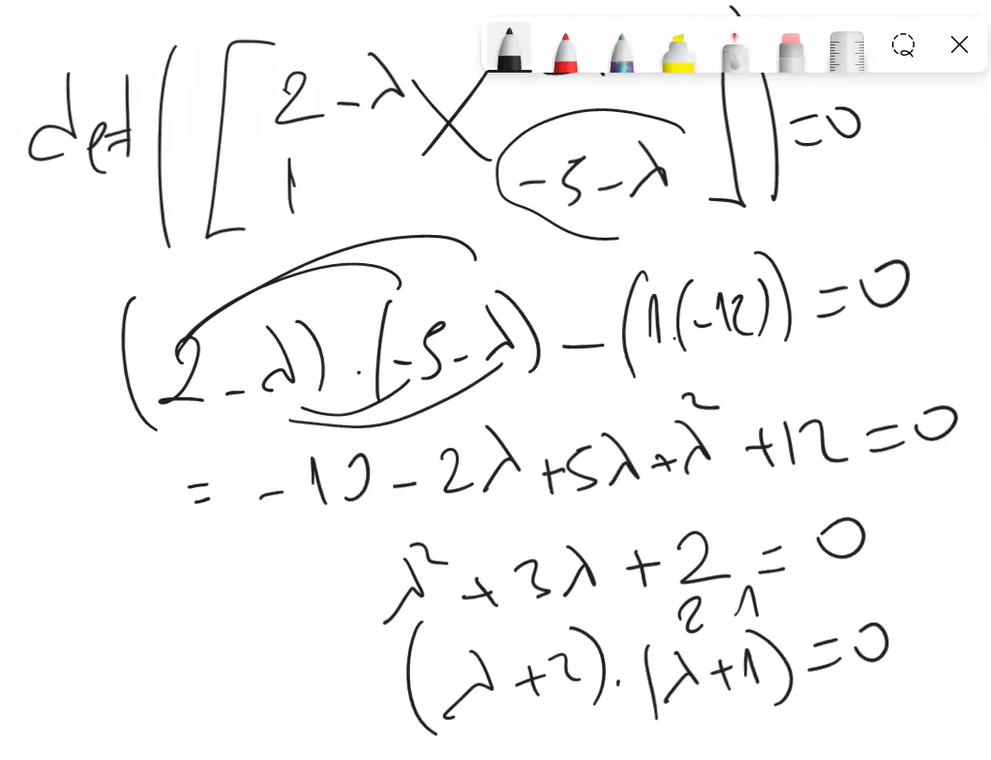 det([2-λ
1 -5-λ])=0
(2-λ)·(-5-λ)-(1·(-12))=0
= -10-2λ+5λ+λ²+12=0
λ²+3λ+2=0
2 1
(λ+2)·(λ+1)=0